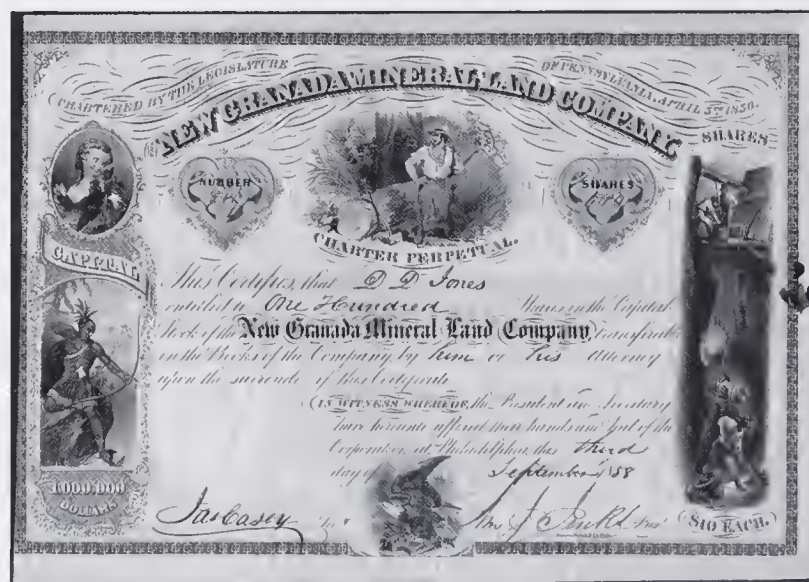 CHARTERED BY THE LEGISLATURE OF PENNSYLVANIA, APRIL 5TH 1850.
NEW GRANADA MINERAL LAND COMPANY
SHARES
NUMBER
SHARES
CHARTER PERPETUAL.
CAPITAL
This Certifies, that D D Jones
entitled to One Hundred Shares in the Capital
Stock of the New Granada Mineral Land Company, transferable
on the Books of the Company, by him or his Attorney
upon the surrender of this Certificate
IN WITNESS WHEREOF, the President and Secretary
have hereunto affixed their hands and Seal of the
Corporation, at Philadelphia, this third
day of September 1858
1,000,000
DOLLARS
Jas Casey
($10 EACH.)